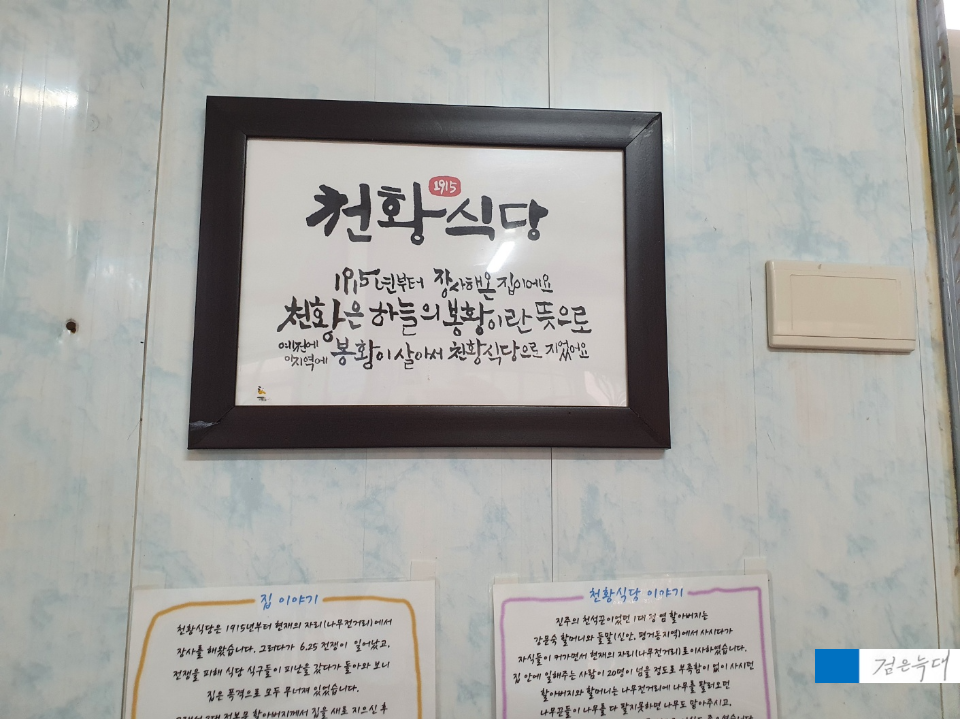 천황식당
1915
1915년부터 장사해온 집이에요
천황은 하늘의 봉황이란 뜻으로
예전에 이지역에 봉황이 살아서 천황식당으로 지었어요
집 이야기
천황식당은 1915년부터 현재의 자리(나무전거리)에서
장사를 해왔습니다. 그러다가 6.25 전쟁이 일어났고,
전쟁을 피해 식당 식구들이 피난을 갔다가 돌아와 보니
집은 폭격으로 모두 무너져 있었습니다.
할아버지께서 집을 새로 지으신 후
천황식당 이야기
진주의 천석꾼이었던 1대 할아버지는
강문숙 할머니와 들말(신안, 평거동지역)에서 사시다가
자식들이 커가면서 현재의 자리(나무전거리)로 이사하였습니다.
집 안에 일해주는 사람이 20명이 넘을 정도로 부족함이 없이 사시던
할아버지와 할머니는 나무전거리에 나무를 팔러오면
나무꾼들이 나무를 다 팔지못하면 나무도 팔아주시고,
검은늑대